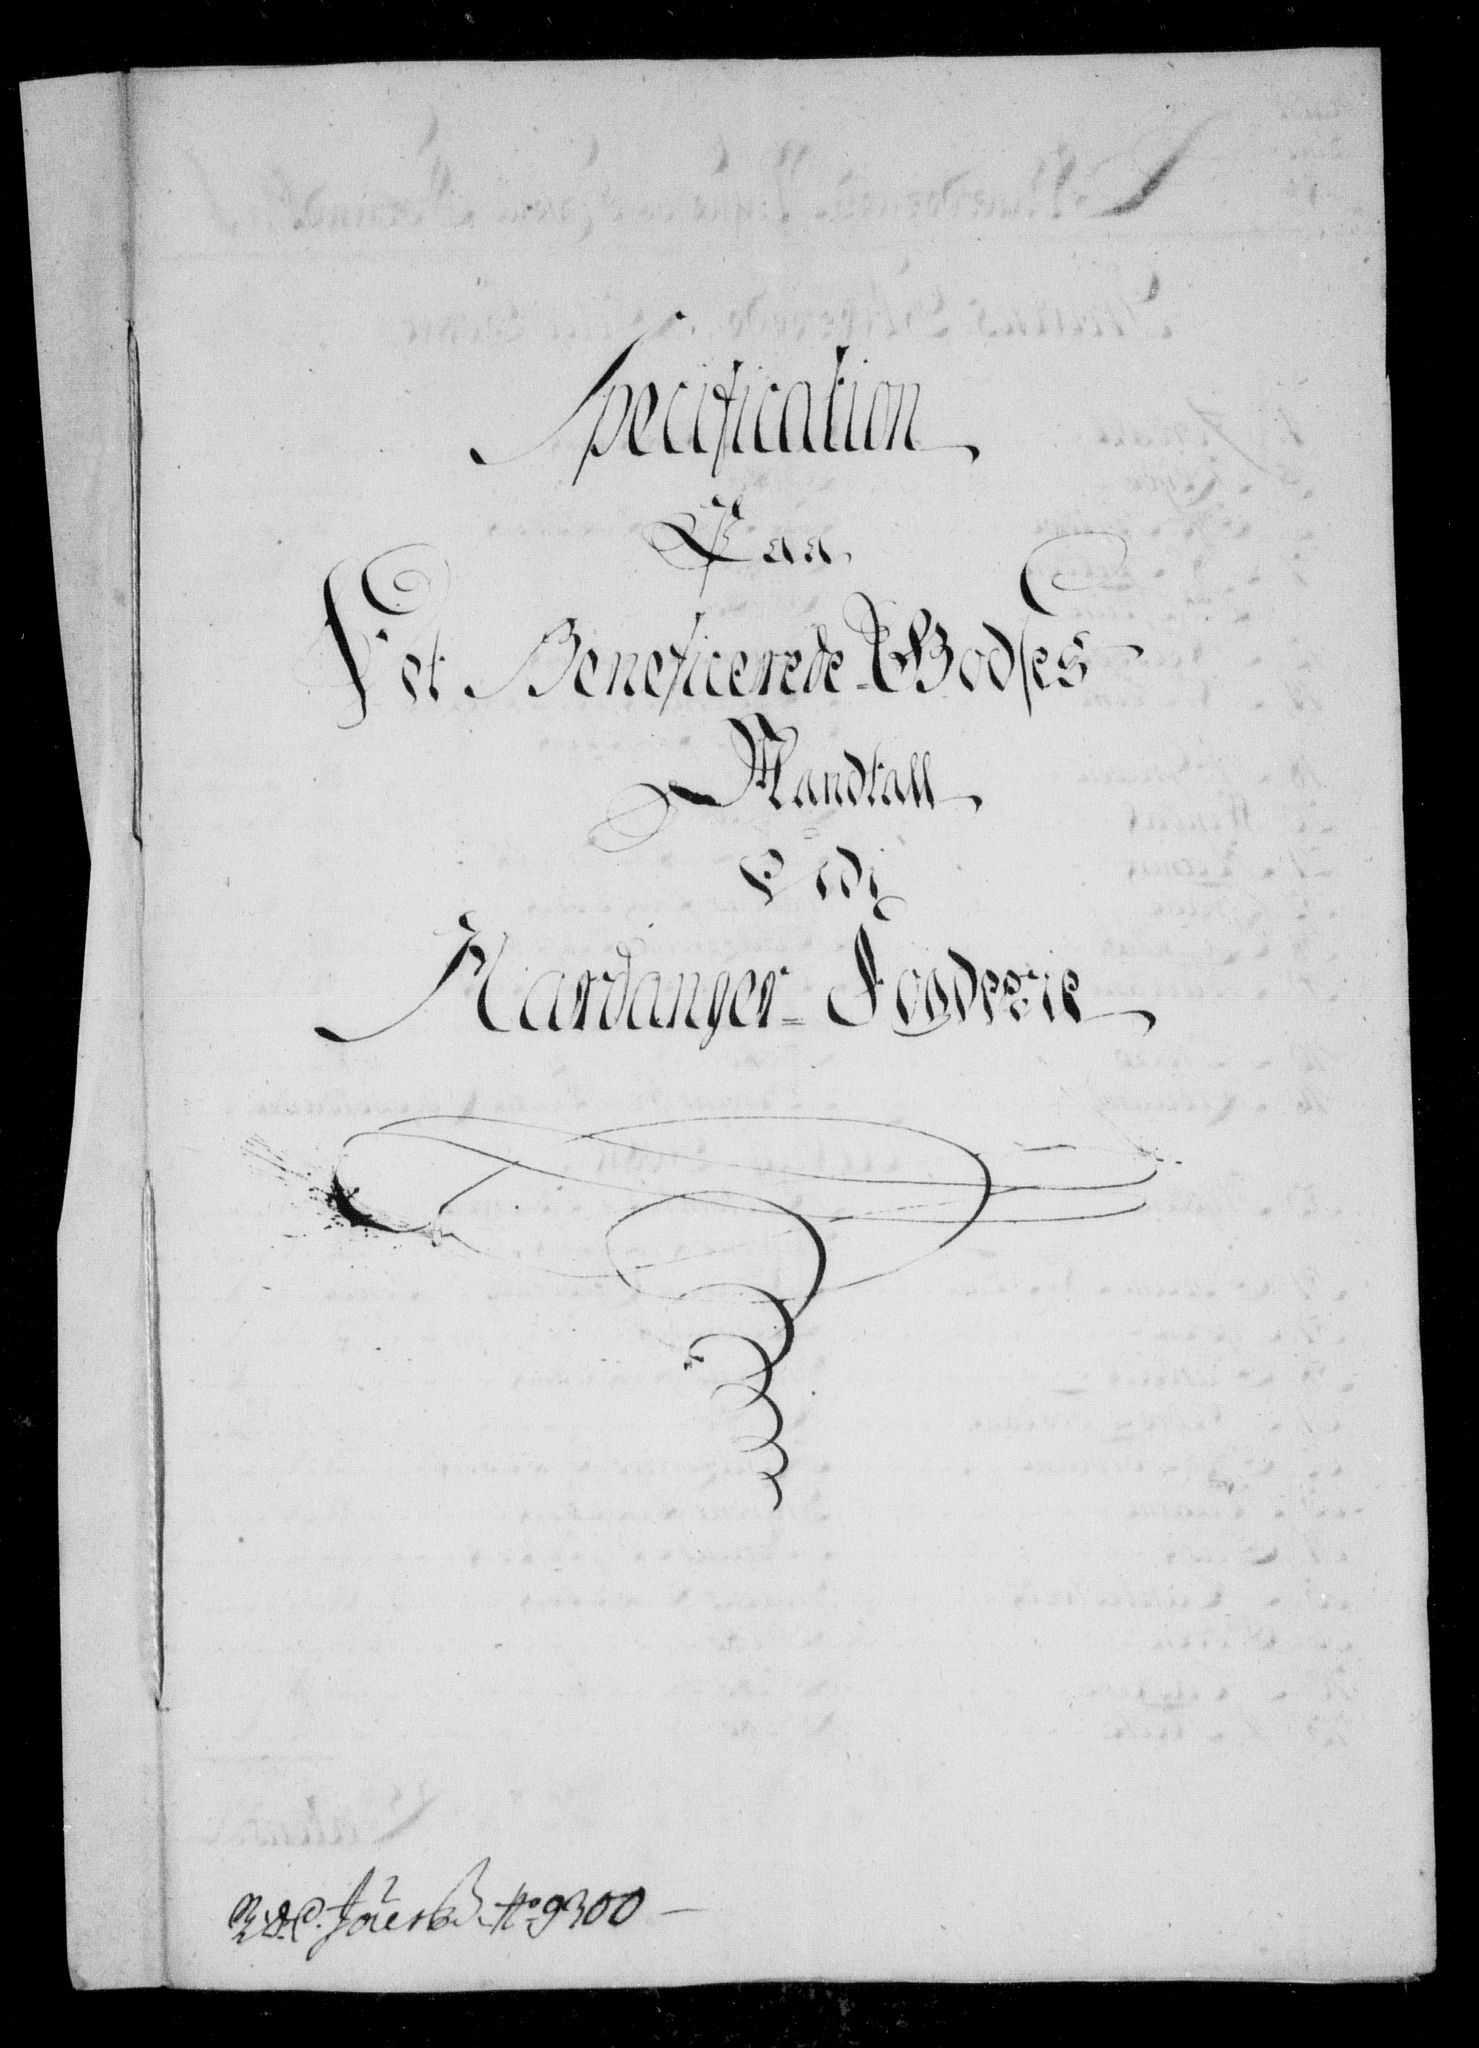 Specification
Paa
Det Beneficerede Godses
Mandtall
Udi
Hardanger Fogderie
No 9300